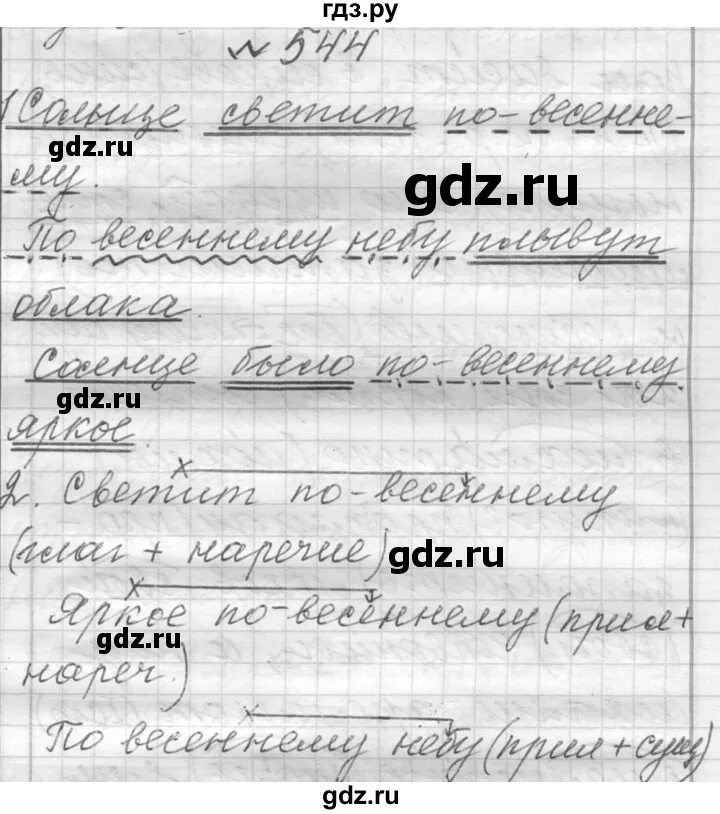 гдз.ру
№ 544
1 Солнце светит по-весенне-
му.
gdz.ru
gdz.ru
По весеннему небу плывут
облака.
Солнце было по-весеннему
gdz.ru
яркое.
2. Светит по-весеннему
(глаг + наречие)
gdz.ru
Яркое по-весеннему (прил+
gdz.ru
нареч.)
По весеннему небу (прил + сущ)
gdz.ru